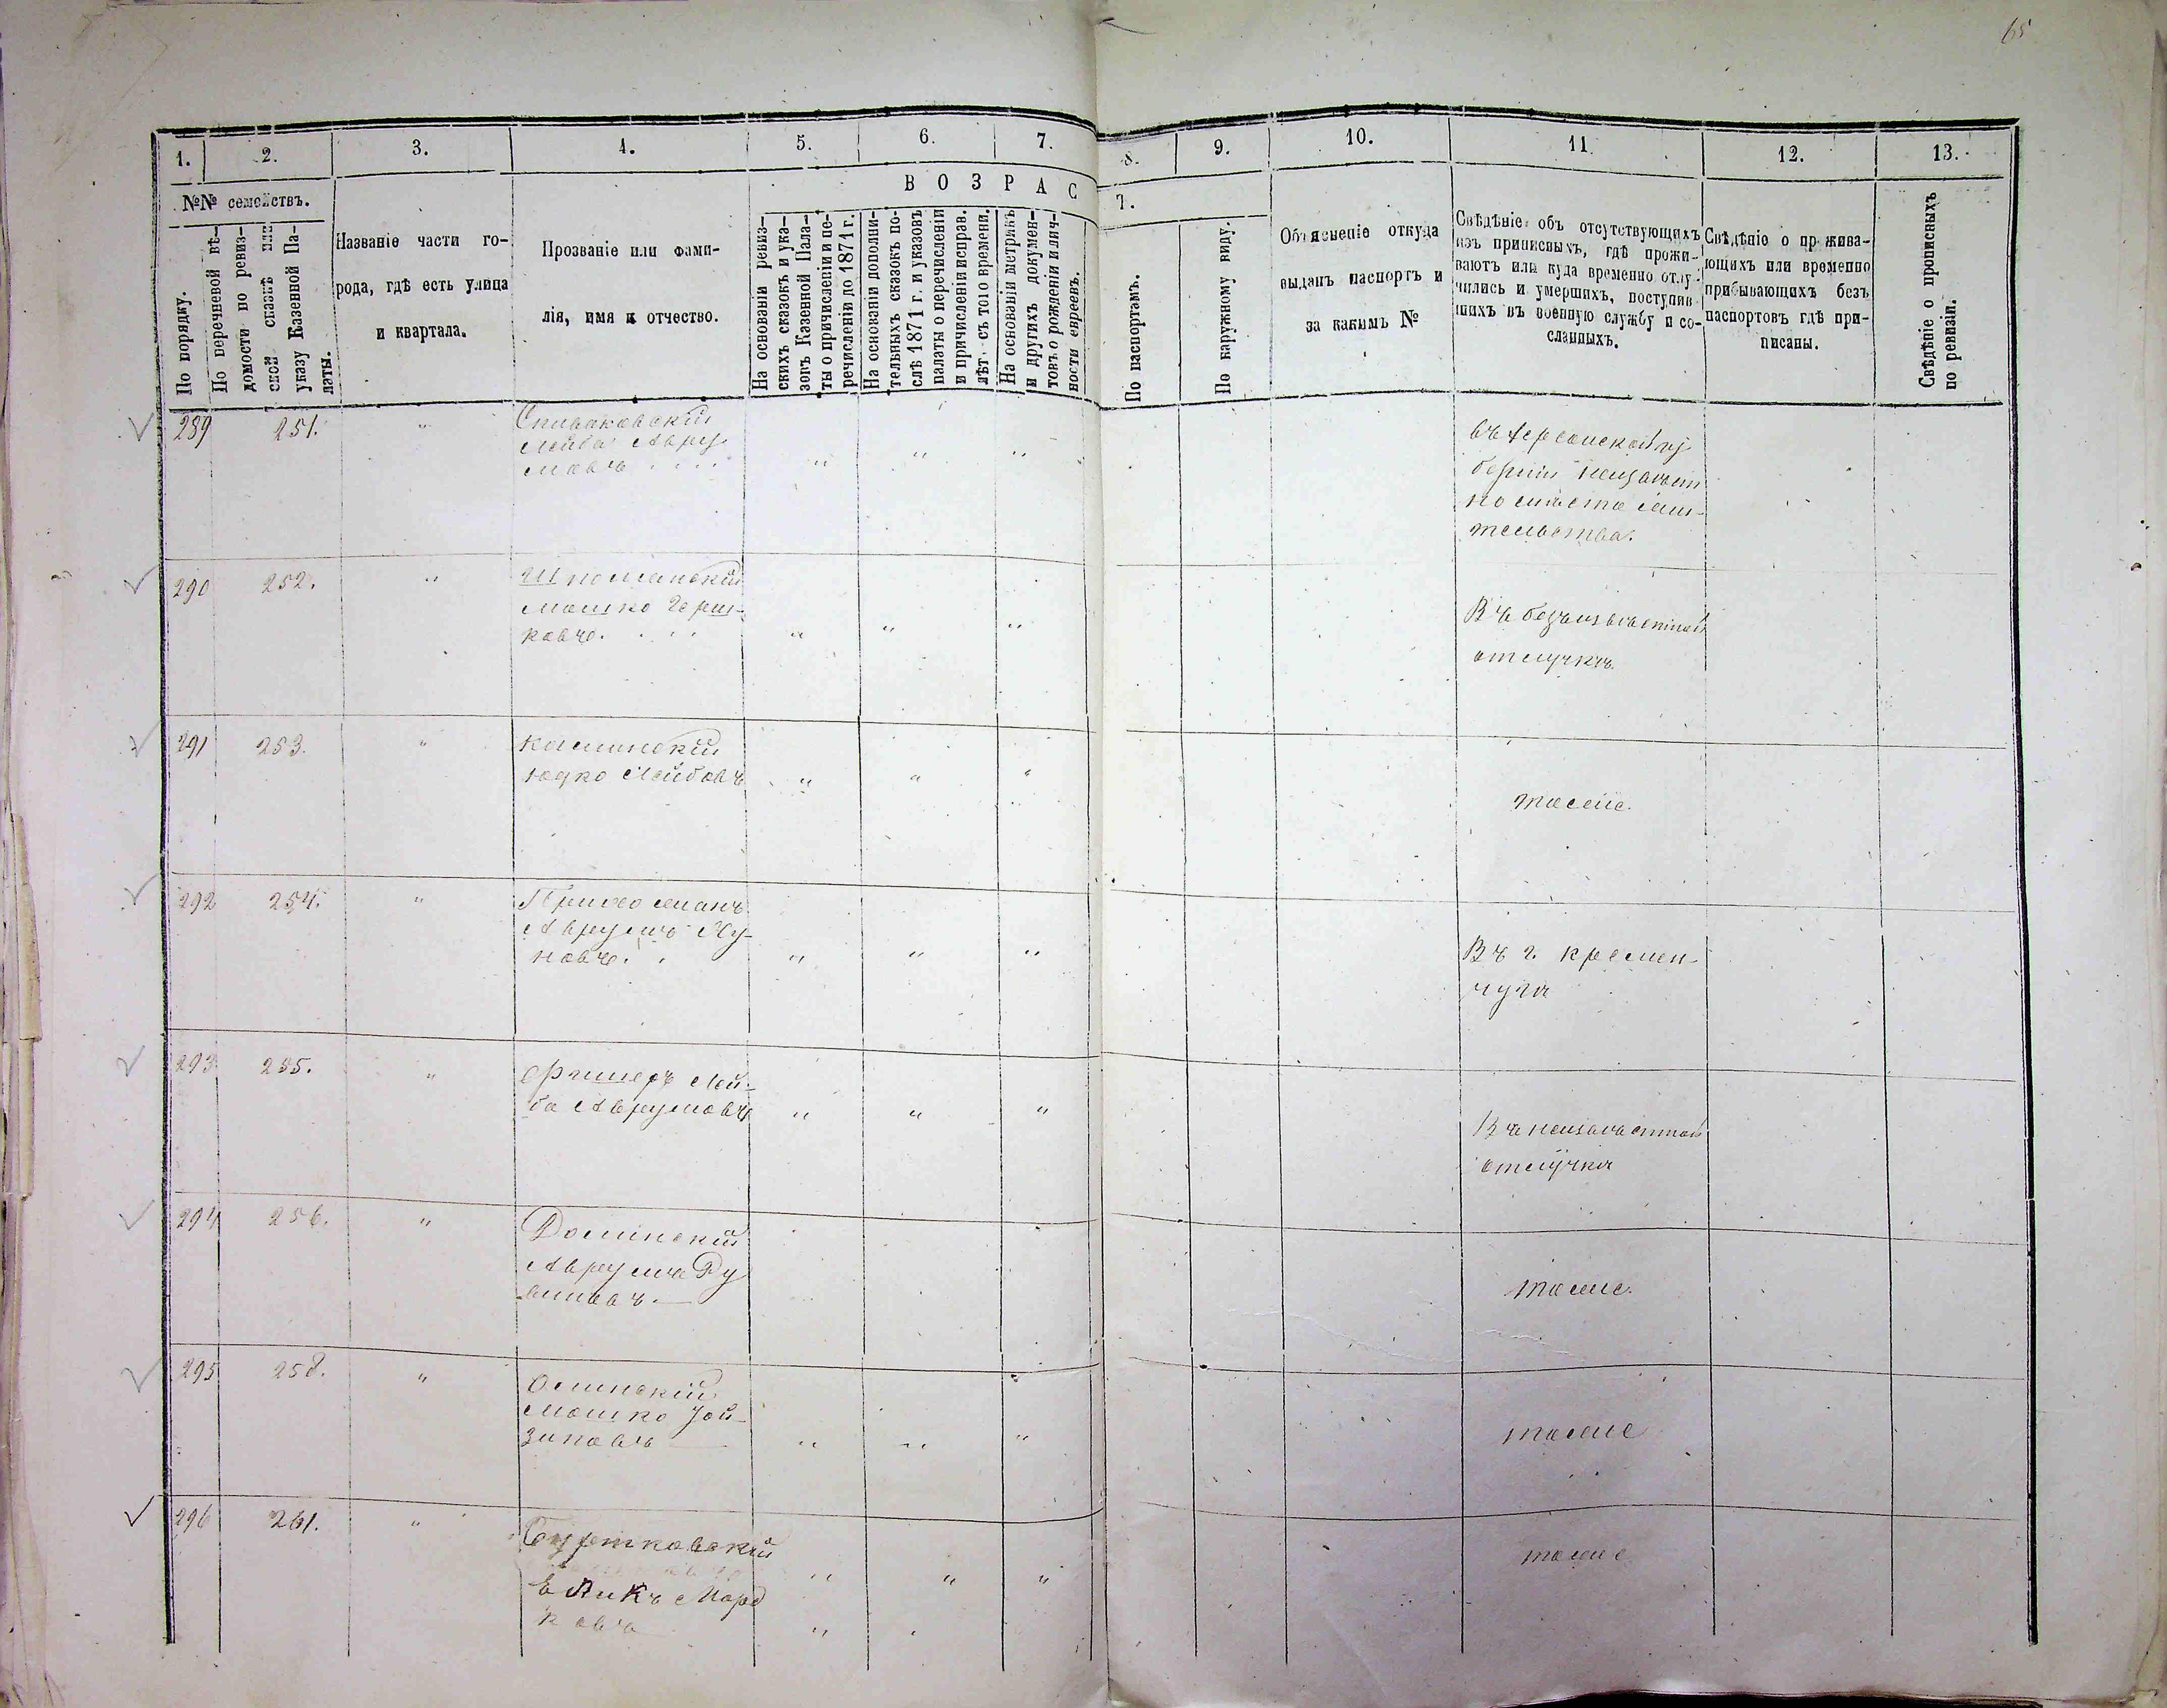 65
1.
2.
3.
4.
5.
6.
7.
8.
9.
10.
11.
12.
13.
ВОЗРАС
Т.
№№ семействъ.
По порядку.
По перечневой вѣ-
домости по ревиз-
ской сказкѣ или
указу Казенной Па-
латы.
Названіе части го-
рода, гдѣ есть улица
и квартала.
Прозваніе или фами-
лія, имя и отчество.
На основаніи ревиз-
скихъ сказокъ и ука-
зовъ Казенной Пала-
ты о причисленіи и пе-
речисленіи до 1871 г.
На основаніи дополни-
тельныхъ сказокъ по-
слѣ 1871 г. и указовъ
палаты о перечисленіи
и причисленіи исправ.
лѣт. съ того времени.
На основаніи метрикъ
и другихъ докумен-
товъ о рожденіи и лич-
ности евреевъ.
По паспортамъ.
По наружному виду.
Объясненіе откуда
выданъ паспортъ и
за какимъ №
Свѣдѣніе объ отсутствующихъ
изъ приписныхъ, гдѣ прожи-
ваютъ или куда временно отлу-
чились и умершихъ, поступив-
шихъ въ военную службу и со-
сланныхъ.
Свѣдѣніе о прожива-
ющихъ или временно
прибывающихъ безъ
паспортовъ гдѣ при-
писаны.
Свѣдѣніе о прописныхъ
по ревизіи.
289 251. "
Спиваковскій
Лейба Авру
мовъ . . . . " " "
въ Херсонской гу
берніи неизвѣст
но мѣсто жи-
тельства.
290 252. "
Шполянскій
Мошко Герш-
ковъ. . . . " " "
Въ безъизвѣстной
отлучкѣ.
291 253. "
Каминскій
Юдко Лейбовъ " " "
тоже.
292 254. "
Аврумъ
новъ. . " " "
Въ г. Кремен-
чугѣ
293 255. "
Фишеръ Лей-
ба Аврумовъ " " "
Въ неизвѣстной
отлучкѣ
294 256. "
Аврумъ Ру
виновъ. —
тоже.
295 258. "
Мошко
зиковъ — " " "
тоже
296 261. "
Мард
ковъ " " " "
тоже